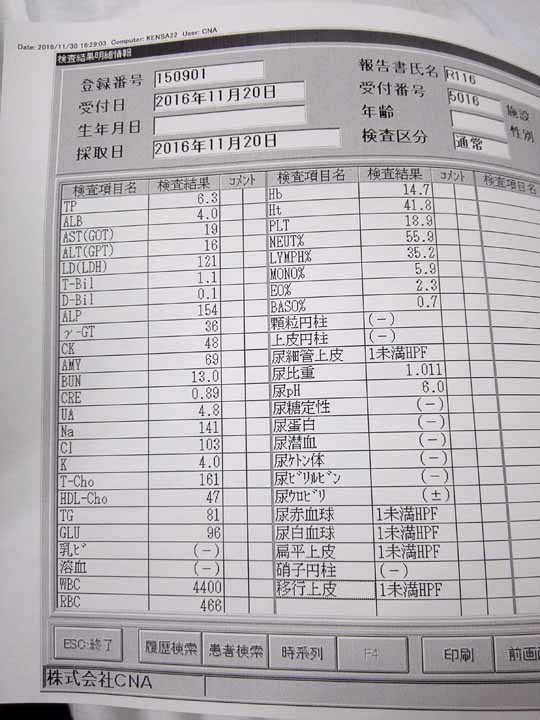 Date: 2016/11/30 16:29:03 Computer: KENSA22 User: CNA
検査結果明細情報
登録番号 150901 報告書氏名 R116
受付日 2016年11月20日 受付番号 5016 施設
生年月日 年齢 性別
採取日 2016年11月20日 検査区分 通常
検査項目名 検査結果 コメント 検査項目名 検査結果 コメント 検査項目
TP 6.3 Hb 14.7
ALB 4.0 Ht 41.8
AST(GOT) 19 PLT 18.9
ALT(GPT) 16 NEUT% 55.9
LD(LDH) 121 LYMPH% 35.2
T-Bil 1.1 MONO% 5.9
D-Bil 0.1 EO% 2.3
ALP 154 BASO% 0.7
γ-GT 36 顆粒円柱 (-)
CK 48 上皮円柱 (-)
AMY 69 尿細管上皮 1未満HPF
BUN 13.0 尿比重 1.011
CRE 0.89 尿pH 6.0
UA 4.8 尿糖定性 (-)
Na 141 尿蛋白 (-)
Cl 103 尿潜血 (-)
K 4.0 尿ケトン体 (-)
T-Cho 161 尿ビリルビン (-)
HDL-Cho 47 尿ウロビリ (±)
TG 81 尿赤血球 1未満HPF
GLU 96 尿白血球 1未満HPF
乳ビ (-) 扁平上皮 1未満HPF
溶血 (-) 硝子円柱 (-)
WBC 4400 移行上皮 1未満HPF
RBC 466
ESC:終了 履歴検索 患者検索 時系列 F4 印刷 前画
株式会社CNA